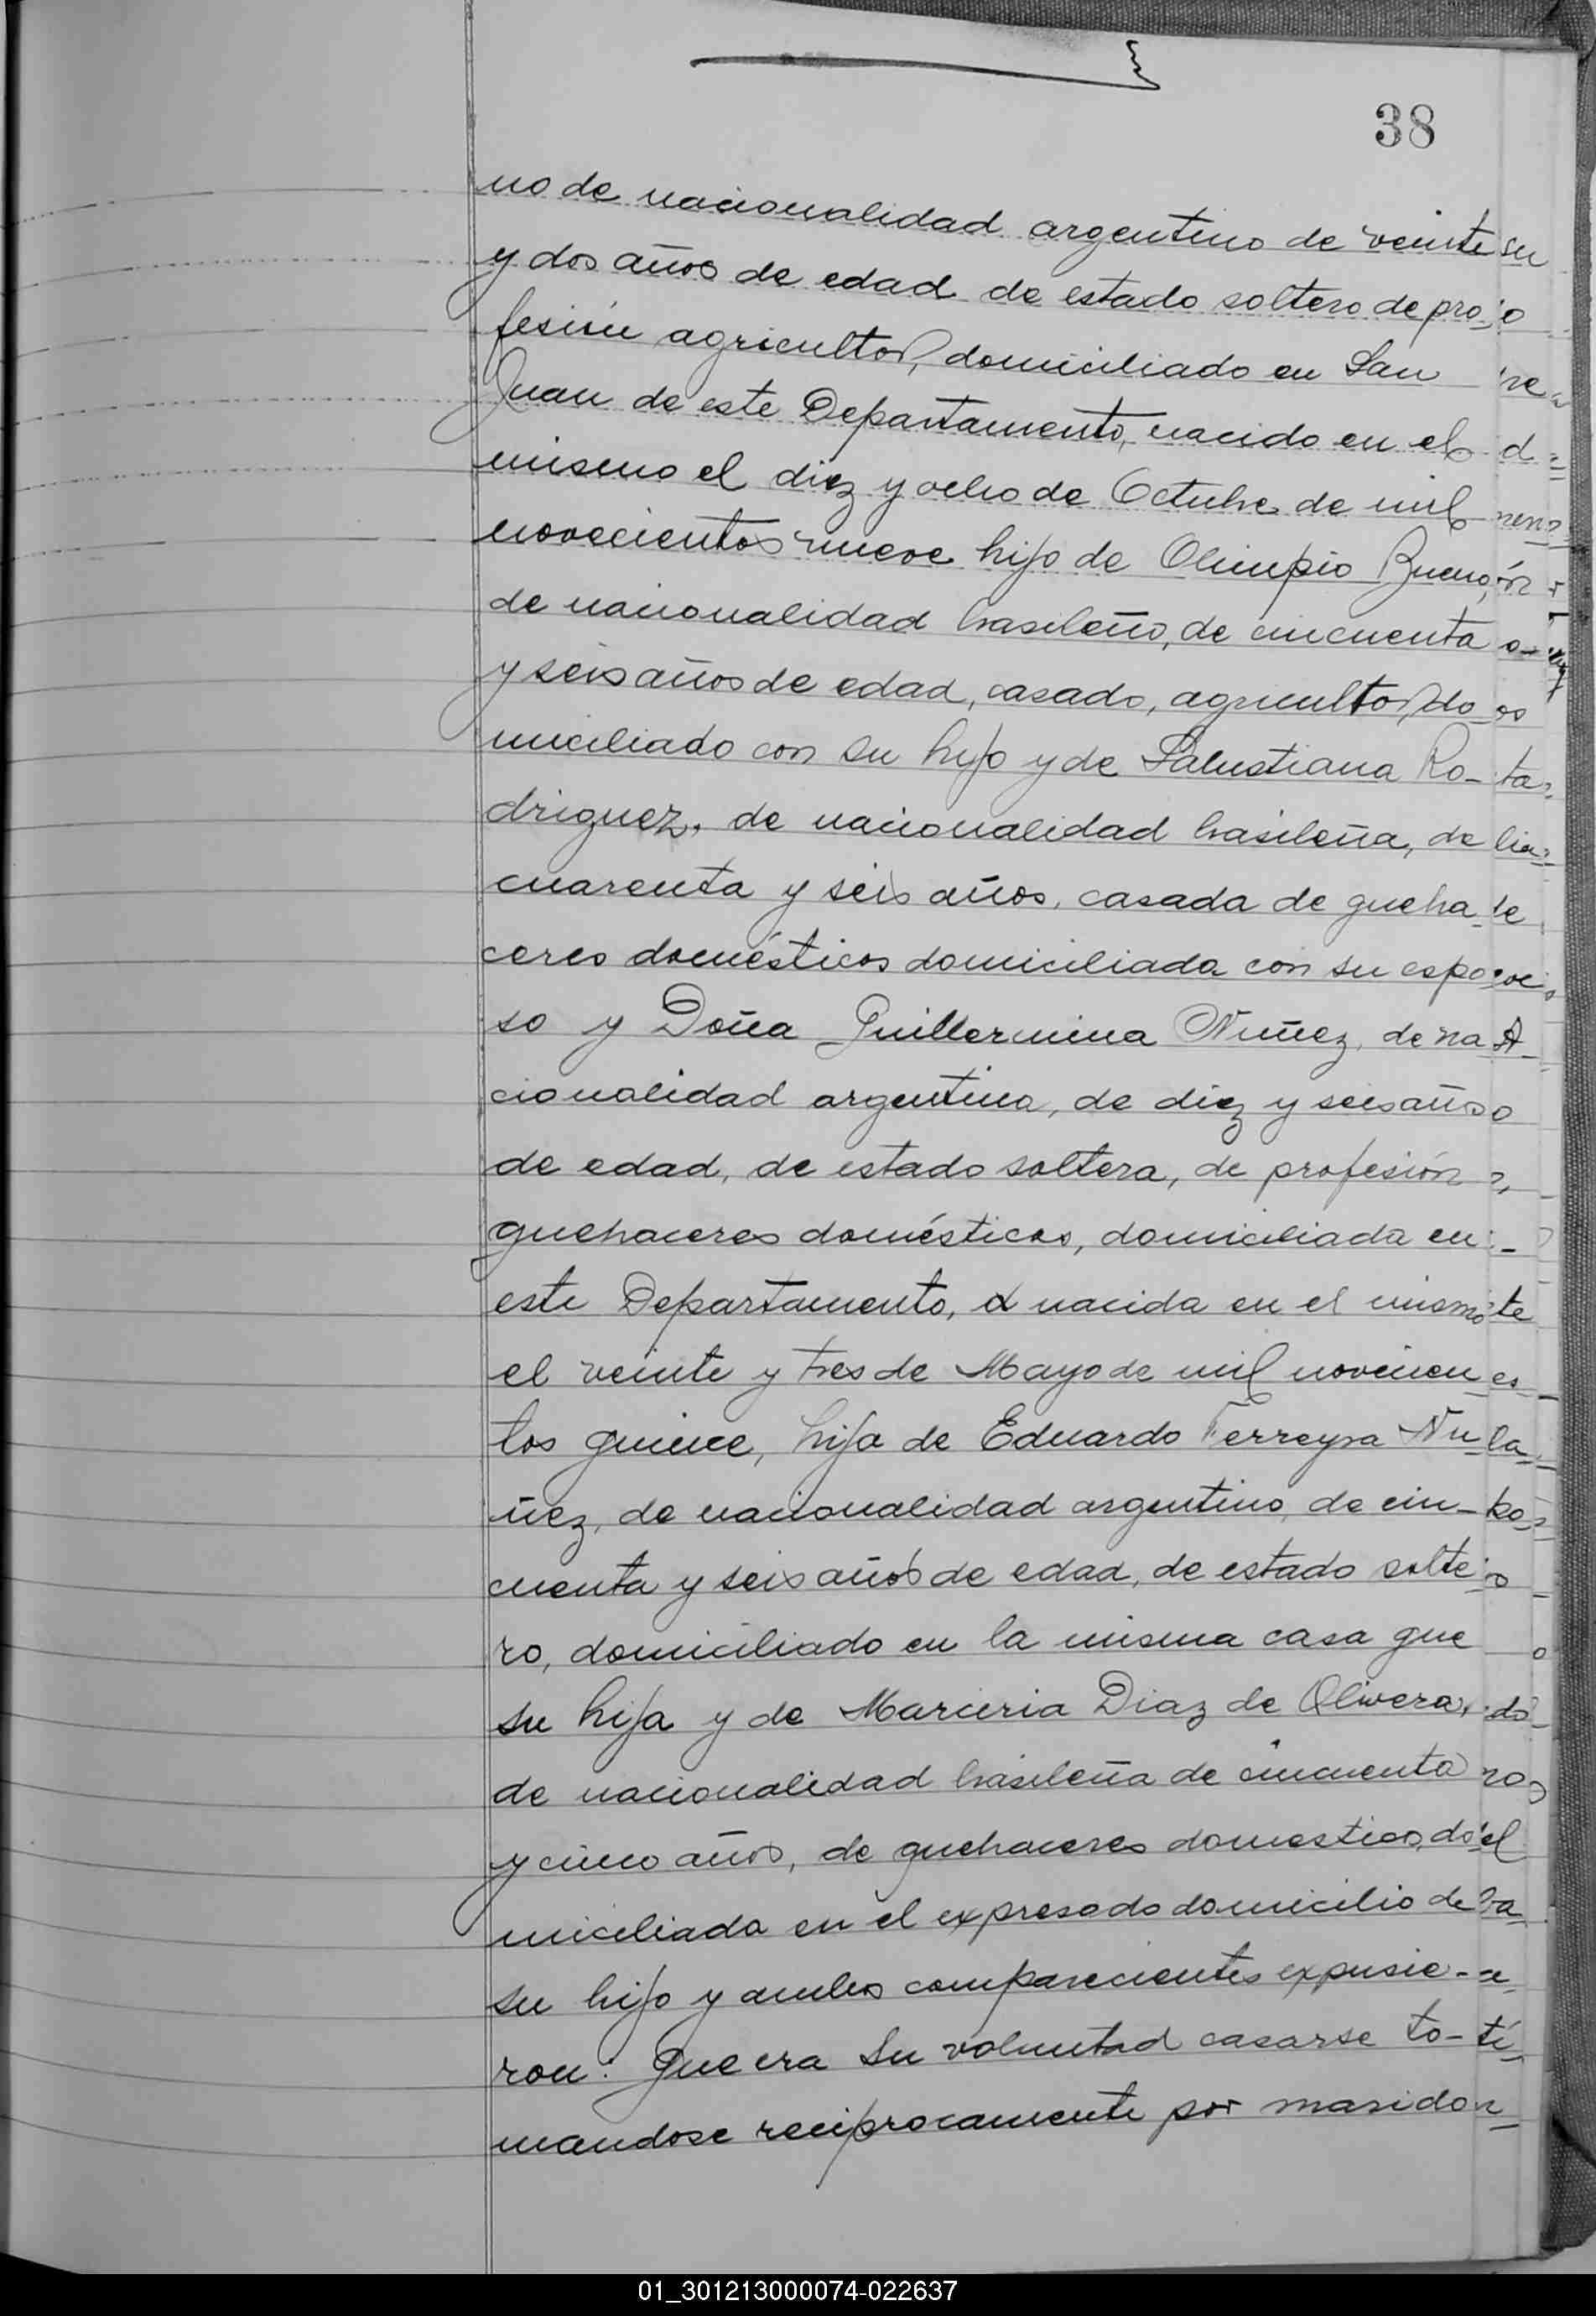 38
no de nacionalidad argentino de veinte
y dos años de edad de estado soltero de pro
fesión agricultor, domiciliado en San
Juan de este Departamento, nacido en el
mismo el diez y ocho de Octubre de mil
novecientos nueve hijo de Olimpio Bueno,
de nacionalidad brasileño, de cincuenta
y seis años de edad, casado, agricultor, do
miciliado con su hijo y de Salustiana Ro-
driguez, de nacionalidad brasileña, de
cuarenta y seis años, casada de queha
ceres domésticos domiciliada con su espo
so y Doña Guillermina Nuñez, de na
cionalidad argentina, de diez y seis años
de edad, de estado soltera, de profesión
quehaceres domésticos, domiciliada en
este Departamento, nacida en el mismo
el veinte y tres de Mayo de mil novecien
tos quince, hija de Eduardo Ferreyra Nu
ñez, de nacionalidad argentino, de cin-
cuenta y seis años de edad, de estado solte
ro, domiciliado en la misma casa que
su hija y de Diaz de Olivera,
de nacionalidad brasileña de cincuenta
y cinco años, de quehaceres domesticos, do
miciliada en el expresado domicilio de
su hijo y ambos comparecientes expusie-
ron: Que era su voluntad casarse to-
mandose reciprocamente por marido
01_301213000074-022637